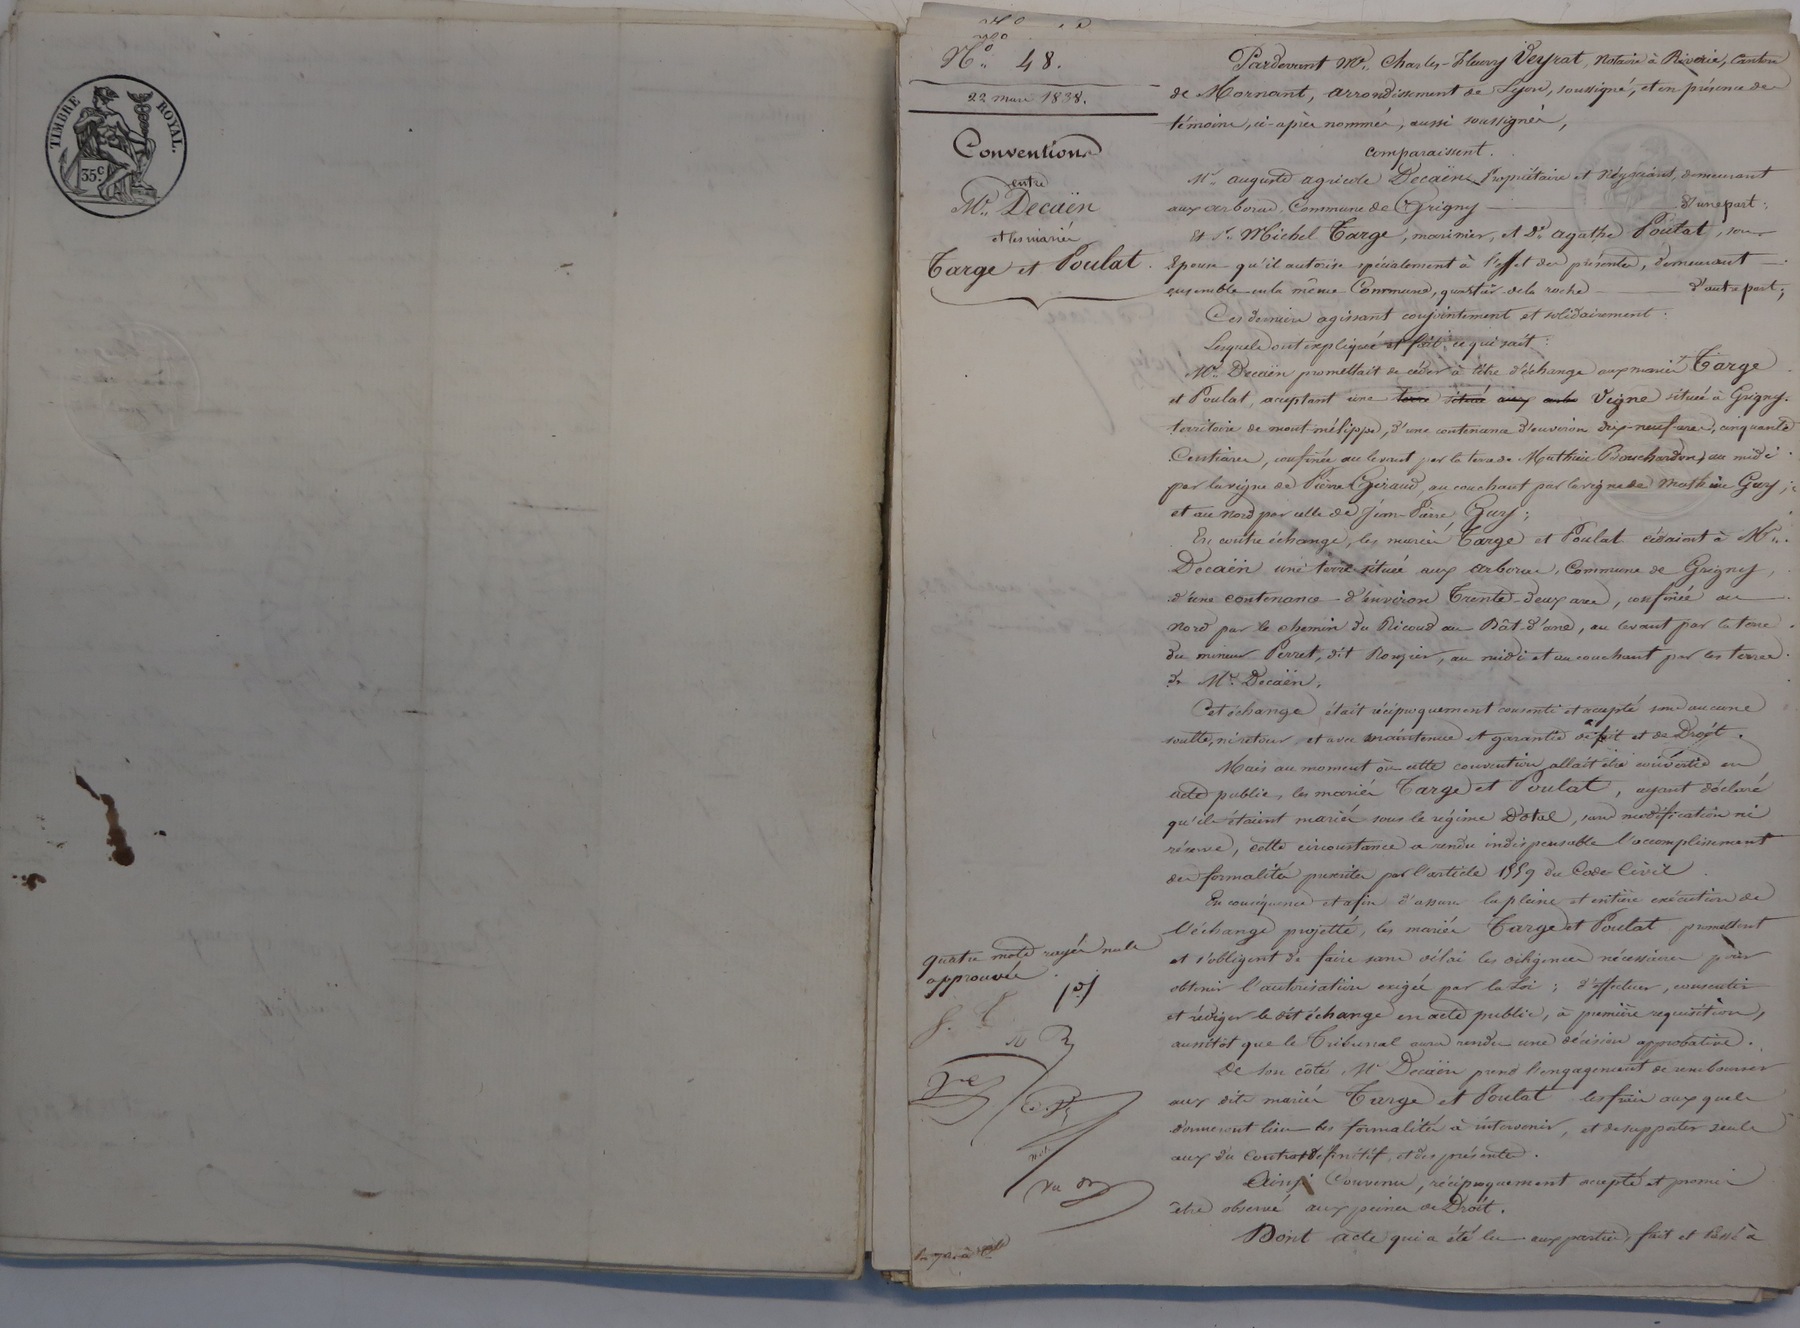 TIMBRE ROYAL.
35c.
No. 48.
22 mars 1838.
Conventions
entre
Mr. Decaën
et les mariés
Targe et Poulat.
Pardevant Me. Charles-Fleury Veyrat, Notaire à Riverie, Canton
de Mornant, arrondissement de Lyon, soussigné, et en présence des
témoins, ci-après nommés, aussi soussignés,
comparaissent.
Mr. auguste agricole Decaën, Propriétaire et Négociant, demeurant
aux arboras, Commune de Grigny d'une part;
Et Sr. Michel Targe, marinier, et De. agathe Poulat, son
Epouse qu'il autorise spécialement à l'effet des présentes, demeurant
ensemble en la même Commune, quartier de la roche d'autre part;
Ces derniers agissant conjointement et solidairement:
Lesquels ont expliqué et fait ce qui suit:
Mr. Decaën promettait de céder à titre d'échange aux mariés Targe
et Poulat, acceptant une terre située aux arbo Vigne située à Grigny,
territoire de mont-mélippe, d'une contenance d'environ dix-neuf ares, cinquante
Centiares, confinée au levant par la terre de Mathieu Bouchardon, au midi
par la vigne de Pierre Giraud, au couchant par la vigne de Mathieu Guy;
et au nord par celle de Jean-Pierre Guy;
En contre échange, les mariés Targe et Poulat cédaient à Mr.
Decaën une terre située aux arboras, Commune de Grigny,
d'une contenance d'environ Trente-deux ares, confinée au
Nord par le chemin du Ricoud au Bât-d'ane, au levant par la terre
du mineur Perret, dit Rongier, au midi et au couchant par les terres
de Mr. Decaën.
Cet échange était réciproquement consenti et accepté sans aucune
soulte, ni retour, et avec maintenue et garantie de fait et de Droit.
Mais au moment où cette convention allait être convertie en
acte public, les mariés Targe et Poulat, ayant déclaré
qu'ils étaient mariés sous le régime Dotal, sans modification ni
réserve, cette circonstance a rendu indispensable l'accomplissement
des formalités prescrites par l'article 1559 du Code Civil.
En conséquence et afin d'assurer la pleine et entière exécution de
l'échange projetté, les mariés Targe et Poulat promettent
et s'obligent de faire sans délai les diligences nécessaires pour
obtenir l'autorisation exigée par la Loi; d'effectuer, consentir
et rédiger le dit échange en acte public, à première réquisition,
aussitôt que le Tribunal aura rendu une décision approbative.
De son côté, Mr Decaën prend l'engagement de rembourser
aux dits mariés Targe et Poulat les frais auxquels
donneront lieu les formalités à intervenir, et de supporter seul
ceux du Contrat définitif, et des présentes.
Ainsi Convenu, réciproquement accepté et promis
être observé aux peines de Droit.
Dont acte qui a été lu aux parties, fait et Passé à
quatre mots rayés nuls
approuvés.